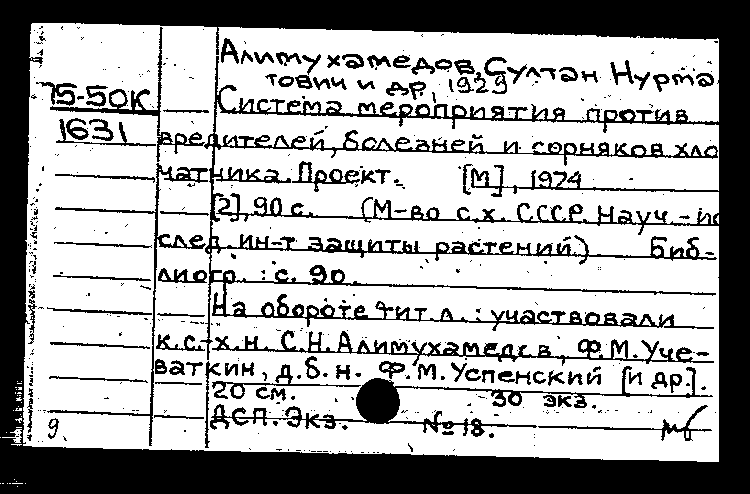 Алимухамедов, Султан Нурма
тович и др, 1929
75-50К
Система мероприятия против
1631
вредителей, болезней и сорняков хло
чатника. Проект. [М], 1974
[2], 90 с. (М-во с.х. СССР. Науч.-ис
след. ин-т защиты растений.) Биб-
лиогр.: с. 90.
На обороте тит. л.: участвовали
к.с.-х.н. С.Н. Алимухамедов, Ф.М. Уче-
ваткин, д.б.н. Ф.М. Успенский [и др.].
20 см. 30 экз.
ДСП. Экз. № 18.
9.